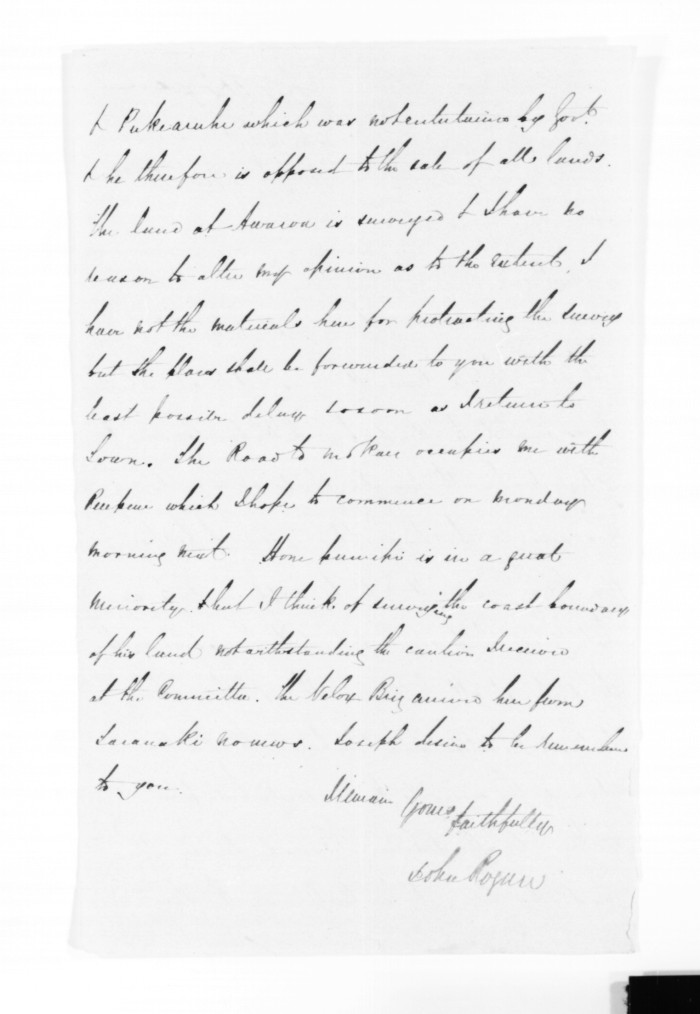 & Pukearuhe which was not entertained by Govt.
& he therefore is opposed to the sale of all lands.
The land at Awaroa is surveyed & I have no
reason to alter my opinion as to the extent, I
have not the materials here for protracting the survey
but the plans shall be forwarded to you with the
least possible delay so soon as I return to
Town. The Road to Mokau occupies me with
which I hope to commence on Monday
morning next. Hone is in a great
minority & but I think of surveying the coast boundary
of his land notwithstanding the caution I received
at the Committee. The Velox Brig arrived here from
Taranaki no news. Joseph desires to be remembered
to you.
I remain Yours faithfully
John Rogan